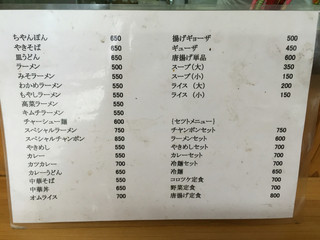 ちゃんぽん 650
やきそば 650
皿うどん 650
ラーメン 500
みそラーメン 550
わかめラーメン 550
もやしラーメン 550
高菜ラーメン 550
キムチラーメン 550
チャーシュー麺 600
スペシャルラーメン 750
スペシャルチャンポン 850
やきめし 550
カレー 550
カツカレー 700
カレーうどん 650
中華そば 550
中華丼 650
オムライス 700
揚げギョーザ 500
ギューザ 450
唐揚げ単品 600
スープ（大） 350
スープ（小） 150
ライス（大） 200
ライス（小） 150
[セツトメニュー]
チャンポンセット 750
ラーメンセット 600
やきめしセット 700
カレーセット 700
冷麺セット 700
冷麺 650
コロツケ定食 700
野菜定食 700
唐揚げ定食 800